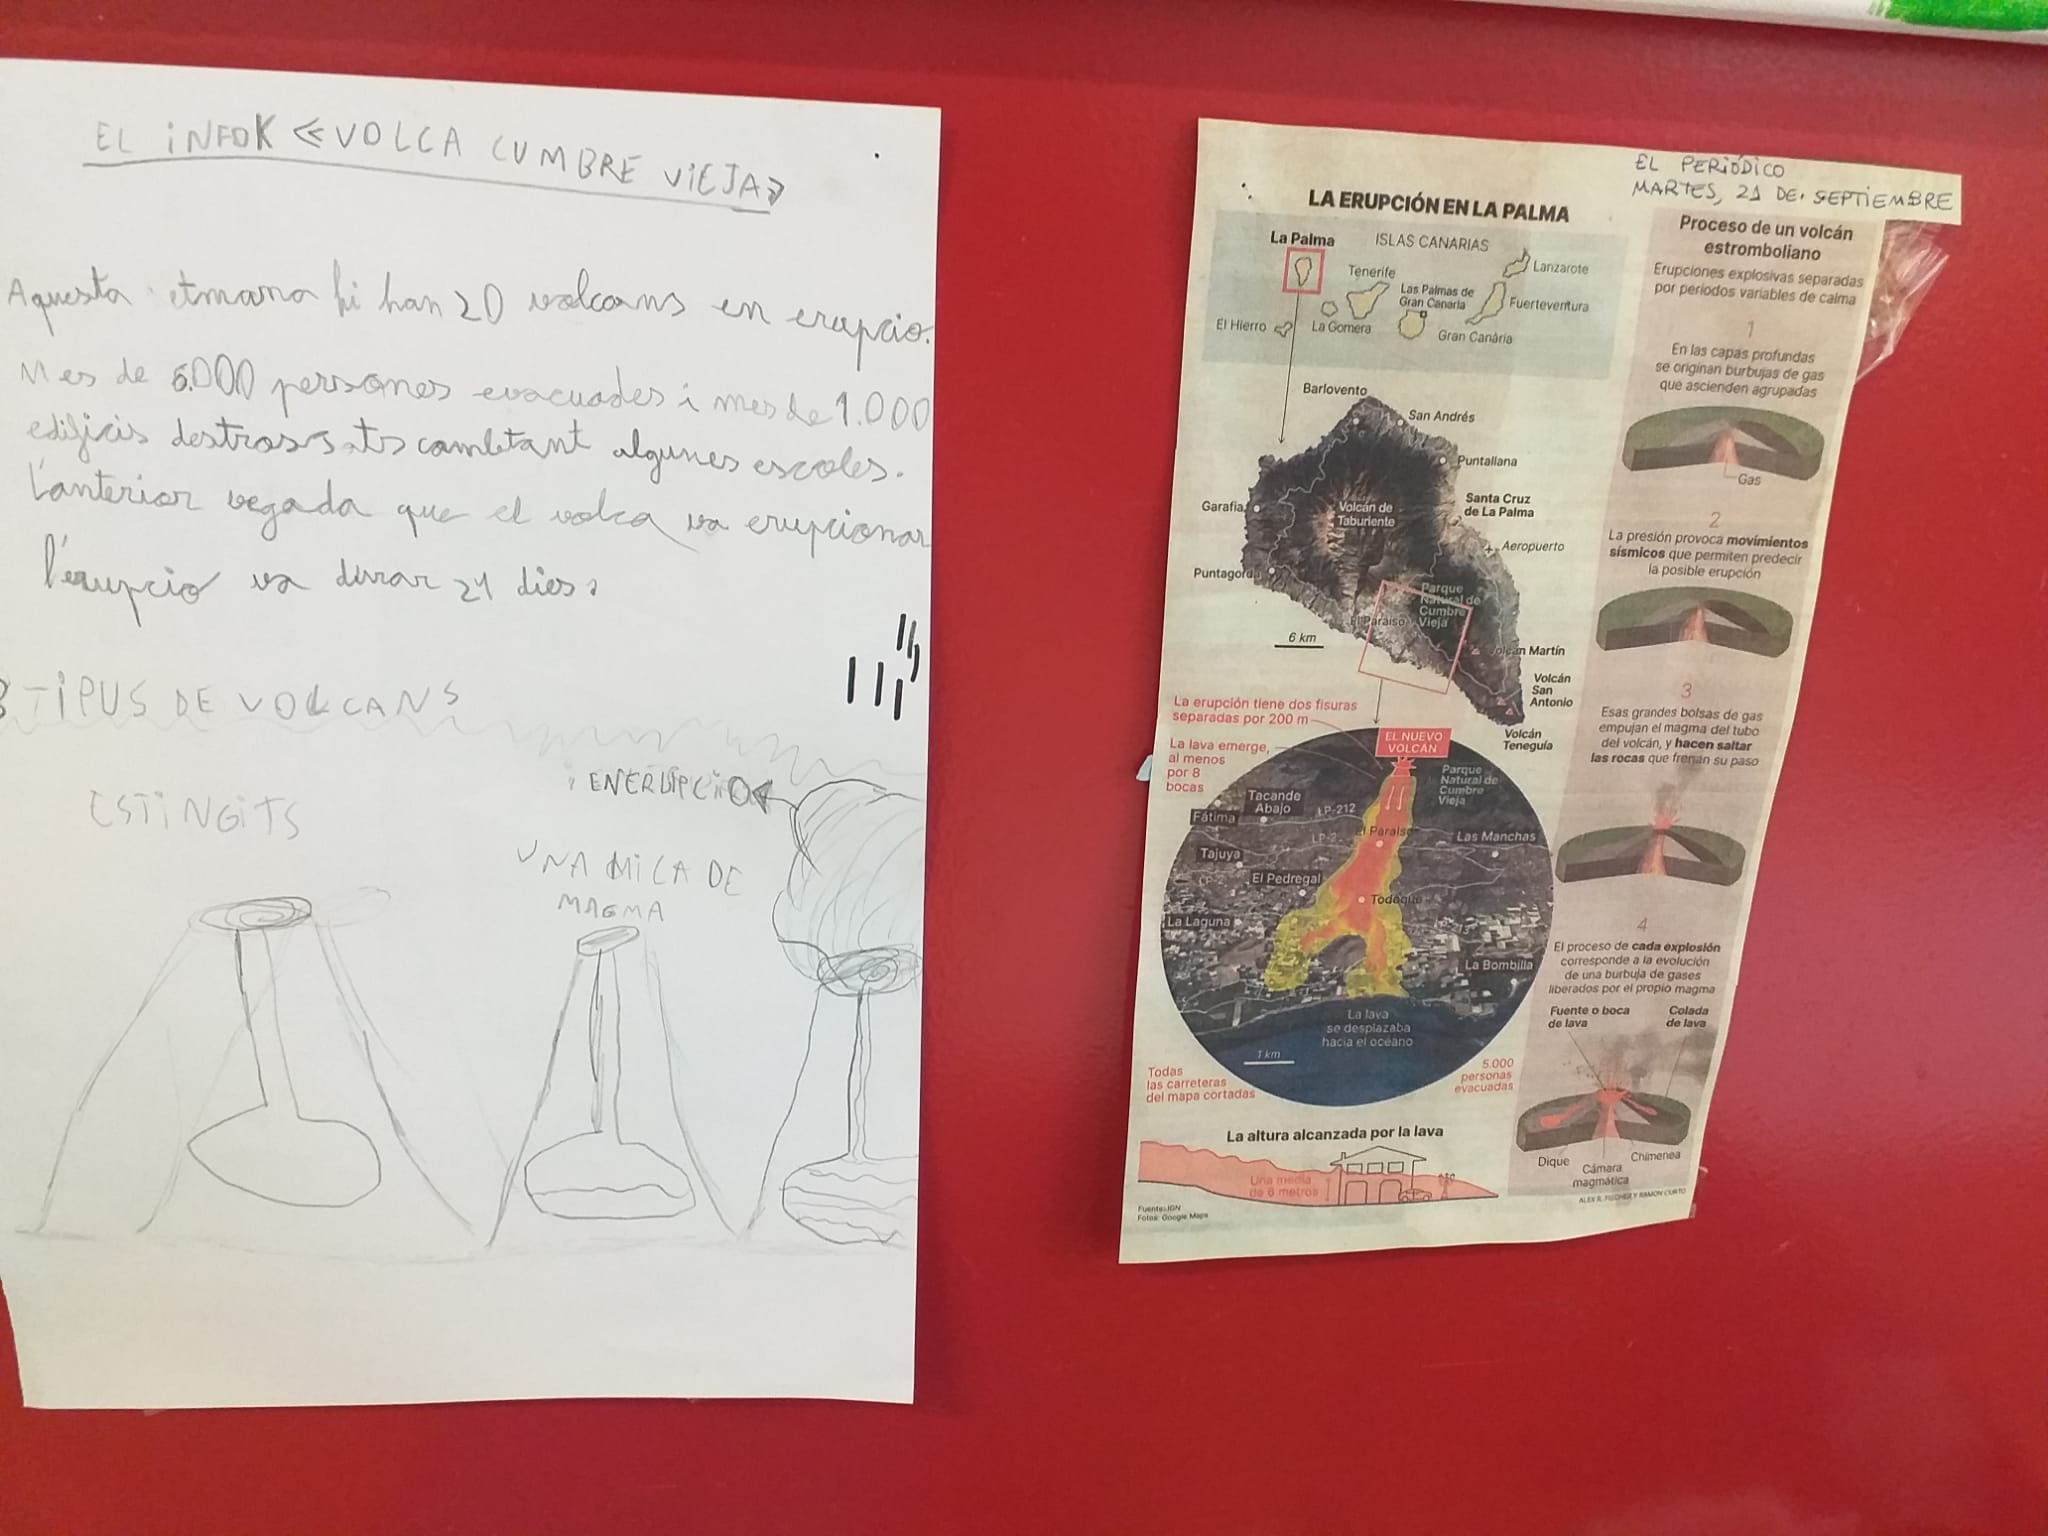 EL iNFOK «VOLCA CUMBRE VIEJA»
Aquesta etmana hi han 20 volcans en erupcio.
Mes de 6.000 persones evacuades i mes de 1.000
edificis destrossats combtant algunes escoles.
L'anterior vegada que el volca va erupcionar
l'erupcio va durar 24 dies.
3 TIPUS DE VOLCANS
ESTINGITS
UNA MICA DE
MAGMA
i ENERUPCiO
EL PERIÓDICO
MARTES, 21 DE. SEPTIEMBRE
LA ERUPCIÓN EN LA PALMA
La Palma
ISLAS CANARIAS
Tenerife
Lanzarote
Las Palmas de
Gran Canaria
Fuerteventura
El Hierro
La Gomera
Gran Canària
Barlovento
San Andrés
Puntallana
Garafia
Volcán de
Taburiente
Santa Cruz
de La Palma
Aeropuerto
Puntagorda
Parque
Natural de
Cumbre
Vieja
El Paraíso
6 km
Volcán Martín
Volcán
San
Antonio
Volcán
Teneguía
La erupción tiene dos fisuras
separadas por 200 m
La lava emerge,
al menos
por 8
bocas
EL NUEVO
VOLCÁN
Parque
Natural de
Cumbre
Vieja
Tacande
Abajo
LP-212
Fátima
LP-2
El Paraíso
Las Manchas
Tajuya
LP-2
El Pedregal
Todoque
La Laguna
LP-213
La Bombilla
La lava
se desplazaba
hacia el océano
1 km
Todas
las carreteras
del mapa cortadas
5.000
personas
evacuadas
La altura alcanzada por la lava
Una media
de 6 metros
Fuente: IGN
Fotos: Google Maps
Proceso de un volcán
estromboliano
Erupciones explosivas separadas
por periodos variables de calma
1
En las capas profundas
se originan burbujas de gas
que ascienden agrupadas
Gas
2
La presión provoca movimientos
sísmicos que permiten predecir
la posible erupción
3
Esas grandes bolsas de gas
empujan el magma del tubo
del volcán, y hacen saltar
las rocas que frenan su paso
4
El proceso de cada explosión
corresponde a la evolución
de una burbuja de gases
liberados por el propio magma
Fuente o boca
de lava
Colada
de lava
Dique
Cámara
magmática
Chimenea
ALEX R. FISCHER Y RAMON CURTO